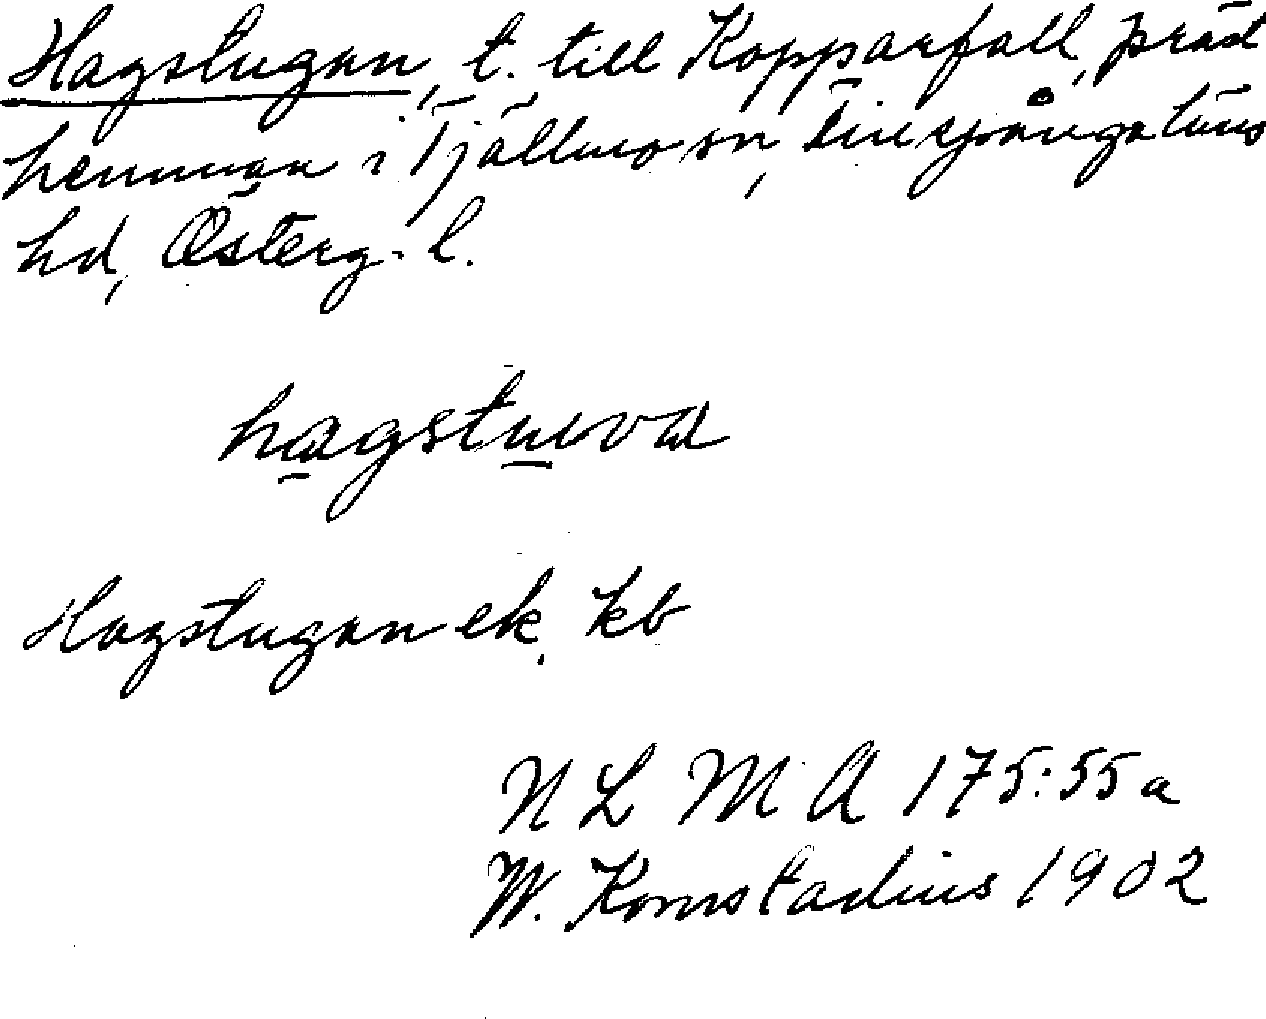 Hagstugan, t. till Kopparfall, präst
hemman i Tjällmo sn, Finspångaläns
hd, Österg. l.
hagstuva
Hagstugan ek, kb
N L M A 175:55 a
W. Kornstadius 1902